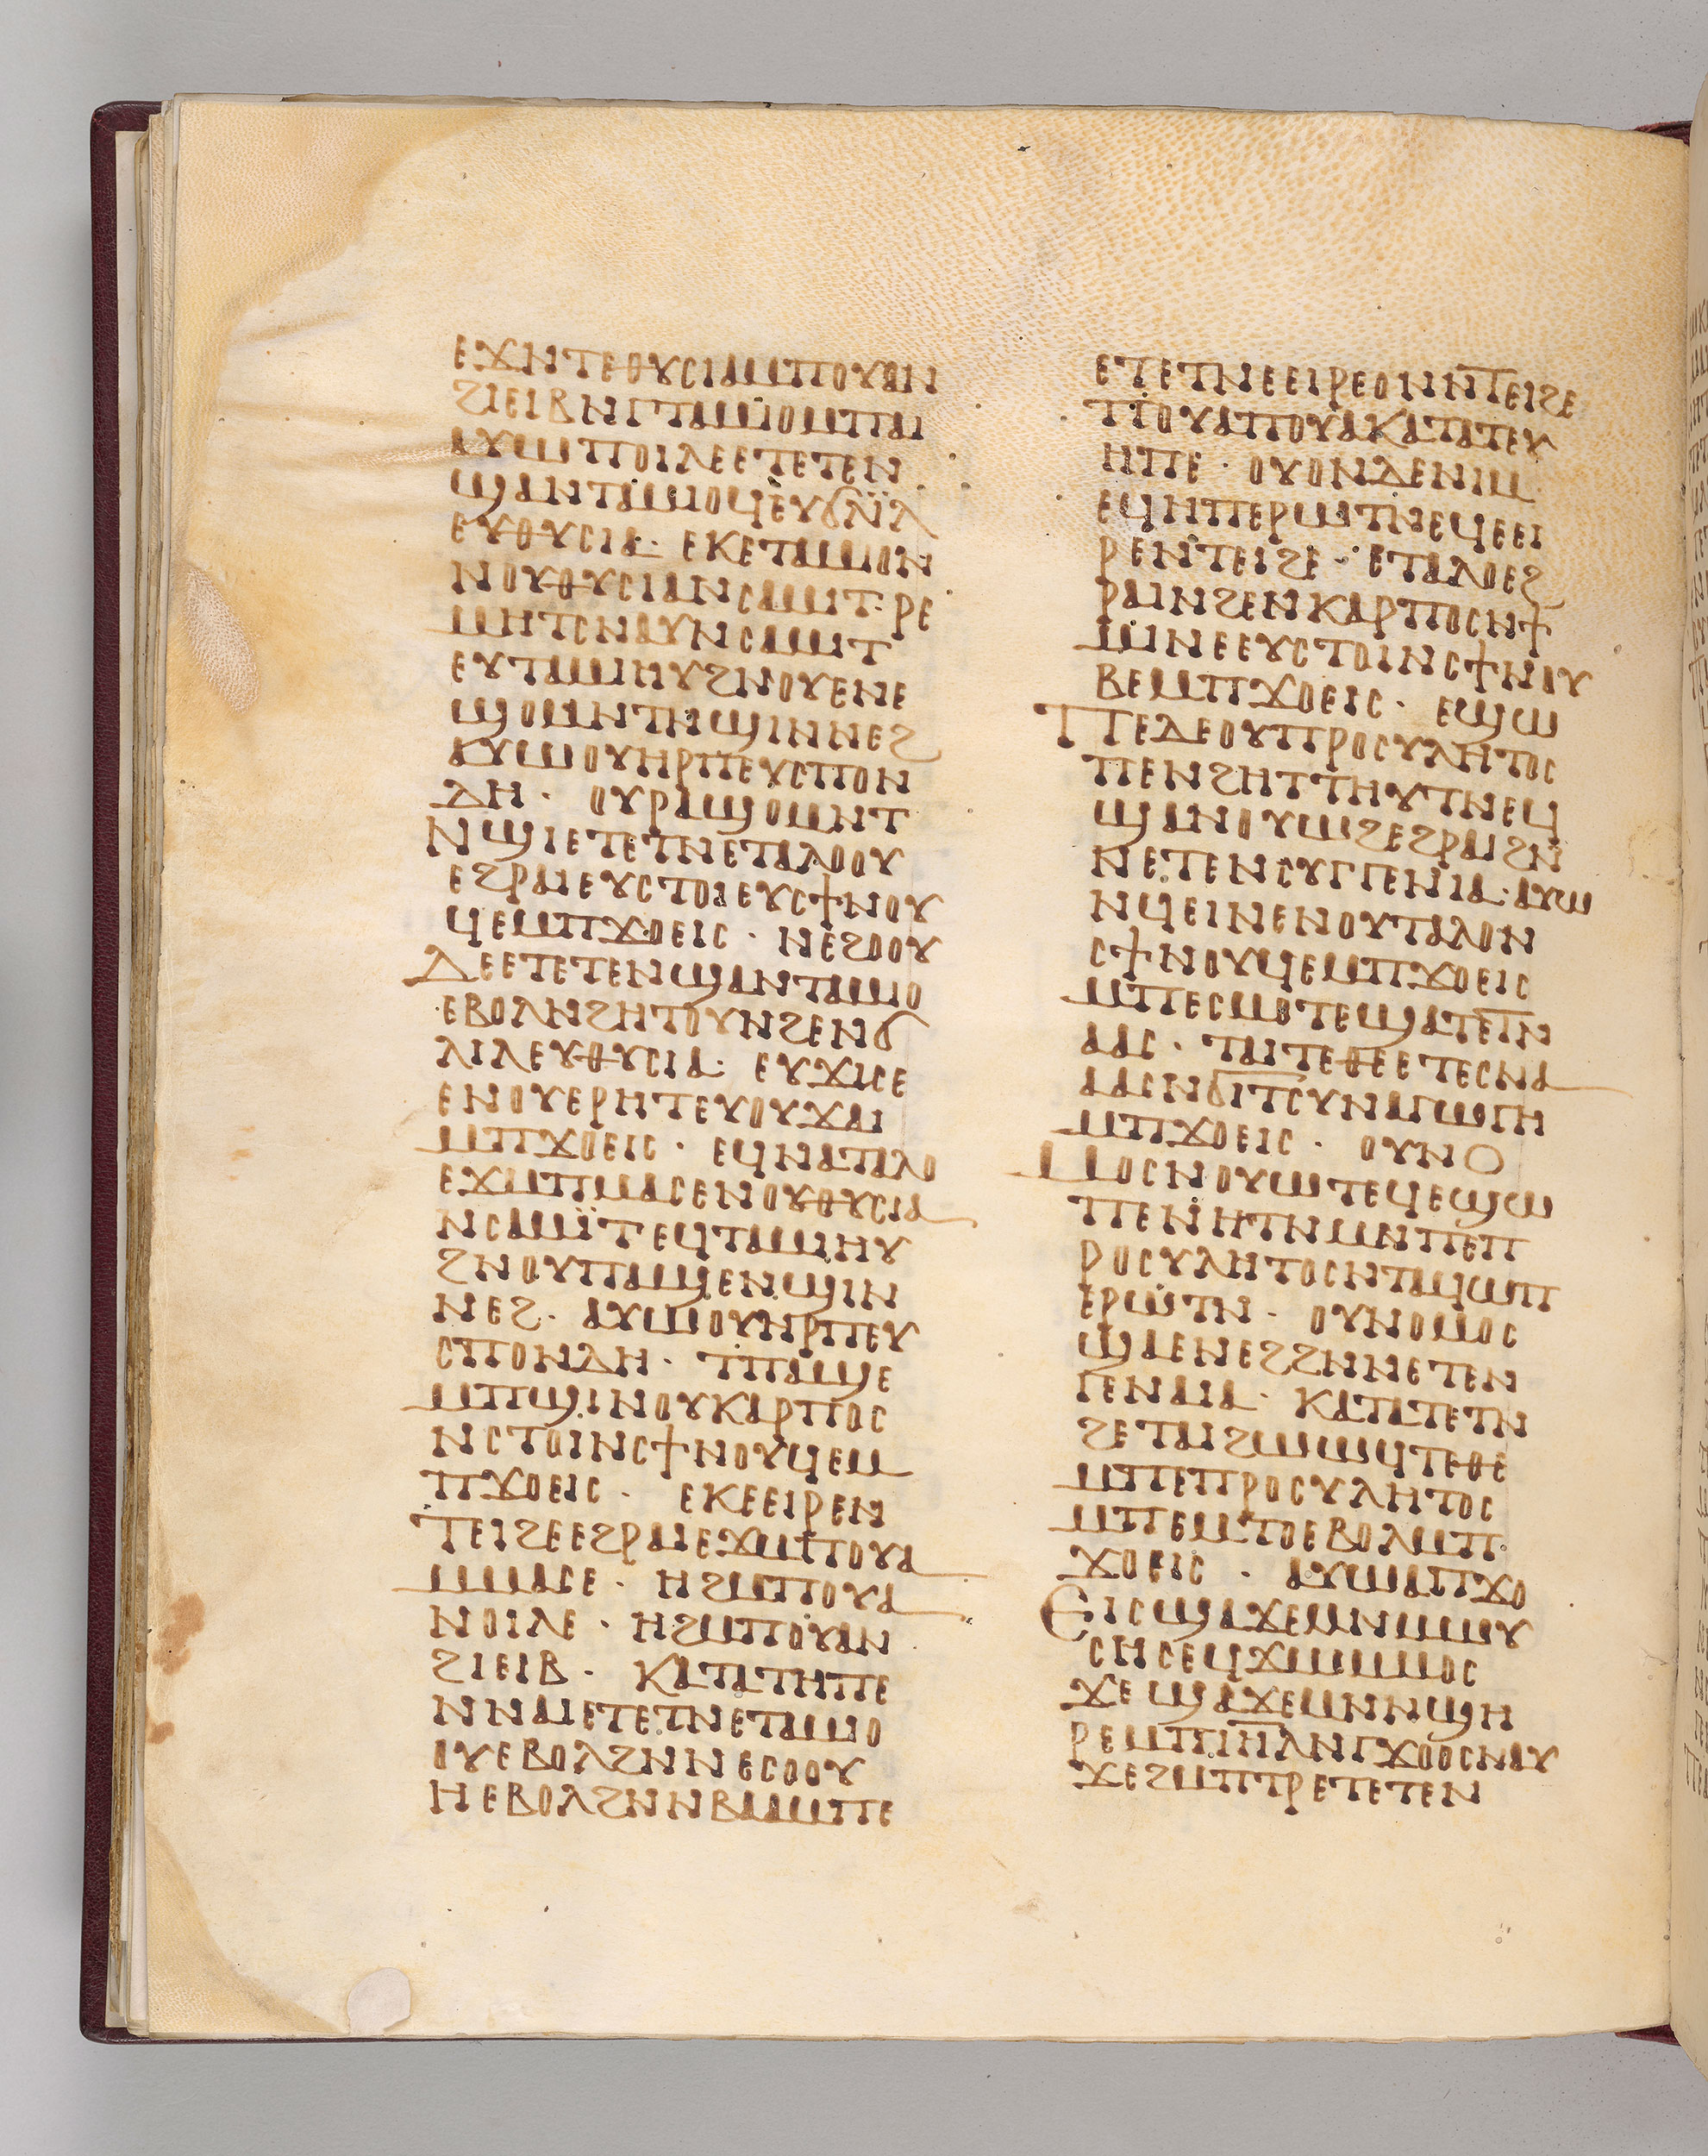 ⲉϫⲛⲧⲉⲑⲩⲥⲓⲁⲙⲡⲟⲩⲁⲛ
ϩⲓⲉⲓⲃⲛⲅⲧⲁⲙⲓⲟⲙⲡⲁⲓ
ⲁⲩⲱⲡⲟⲓⲗⲉⲉⲧⲉⲧⲉⲛ
ϣⲁⲛⲧⲁⲙⲓⲟϥⲉⲩϭⲗⲓⲗ
ⲉⲩⲑⲩⲥⲓⲁ· ⲉⲕⲉⲧⲁⲙⲓⲟⲛ
ⲛⲟⲩⲑⲩⲥⲓⲁⲛⲥⲁⲙⲓⲧ· ⲣⲉ
ⲙⲏⲧⲥⲛⲁⲩⲛⲥⲁⲙⲓⲧ
ⲉⲩⲧⲁⲙⲓⲏⲩϩⲛⲟⲩⲉⲛⲉ
ϣⲟⲙⲛⲧⲛϣⲓⲛⲛⲉϩ
ⲁⲩⲱⲟⲩⲏⲣⲡⲉⲩⲥⲡⲟⲛ
ⲇⲏ· ⲟⲩⲣⲁϣⲟⲙⲛⲧ
ⲛϣⲓⲉⲧⲉⲧⲛⲉⲧⲁⲗⲟⲟⲩ
ⲉϩⲣⲁⲓⲉⲩⲥⲧⲟⲓⲉⲩⲥϯⲛⲟⲩ
ϥⲉⲙⲡϫⲟⲉⲓⲥ· ⲛⲉϩⲟⲟⲩ
ⲇⲉⲉⲧⲉⲧⲉⲛϣⲁⲛⲧⲁⲙⲓⲟ
ⲉⲃⲟⲗⲛϩⲏⲧⲟⲩⲛϩⲉⲛϭ
ⲗⲓⲗⲉⲩⲑⲩⲥⲓⲁ· ⲉⲩϫⲓⲥⲉ
ⲉⲛⲟⲩⲉⲣⲏⲧⲉⲩⲟⲩϫⲁⲓ
ⲙⲡϫⲟⲉⲓⲥ· ⲉϥⲛⲁⲧⲁⲗⲟ
ⲉϫⲙⲡⲙⲁⲥⲉⲛⲟⲩⲑⲩⲥⲓⲁ
ⲛⲥⲁⲙⲓⲧⲉϥⲧⲁⲙⲓⲏⲩ
ϩⲛⲟⲩⲡⲁϣⲉⲛϣⲓⲛ
ⲛⲉϩ· ⲁⲩⲱⲟⲩⲏⲣⲡⲉⲩ
ⲥⲡⲟⲛⲇⲏ· ⲧⲡⲁϣⲉ
ⲙⲡϣⲓⲛⲟⲩⲕⲁⲣⲡⲟⲥ
ⲛⲥⲧⲟⲓⲛⲥϯⲛⲟⲩϥⲉⲙ
ⲡϫⲟⲉⲓⲥ· ⲉⲕⲉⲉⲓⲣⲉⲛ
ⲧⲉⲓϩⲉⲉϩⲣⲁⲓⲉϫⲙⲡⲟⲩⲁ
ⲙⲙⲁⲥⲉ· ⲏϩⲙⲡⲟⲩⲁ
ⲛⲟⲓⲗⲉ· ⲏϩⲙⲡⲟⲩⲁⲛ
ϩⲓⲉⲓⲃ· ⲕⲁⲧⲁⲧⲏⲡⲉ
ⲛⲛⲁⲓⲉⲧⲉⲧⲛⲉⲧⲁⲙⲓⲟ
ⲟⲩⲉⲃⲟⲗϩⲛⲛⲉⲥⲟⲟⲩ
ⲏⲉⲃⲟⲗϩⲛⲛⲃⲁⲁⲙⲡⲉ
ⲉⲧⲉⲧⲛⲉⲉⲓⲣⲉⲟⲛⲛⲧⲉⲓϩⲉ
ⲡⲟⲩⲁⲡⲟⲩⲁⲕⲁⲧⲁⲧⲉⲩ
ⲏⲡⲉ· ⲟⲩⲟⲛⲇⲉⲛⲓⲙ
ⲉϥⲏⲡⲉⲣⲱⲧⲛⲉϥⲉⲉⲓ
ⲣⲉⲛⲧⲉⲓϩⲉ· ⲉⲧⲁⲗⲟⲉϩ
ⲣⲁⲓⲛϩⲉⲛⲕⲁⲣⲡⲟⲥⲛϯ
ⲙⲓⲛⲉⲉⲩⲥⲧⲟⲓⲛⲥϯⲛⲟⲩ
ⲃⲉⲙⲡϫⲟⲉⲓⲥ· ⲉϣⲱ
ⲡⲉⲇⲉⲟⲩⲡⲣⲟⲥⲩⲗⲏⲧⲟⲥ
ⲡⲉⲛϩⲏⲧⲧⲏⲩⲧⲛⲉϥ
ϣⲁⲛⲟⲩⲱϩⲉϩⲣⲁⲓϩⲛ
ⲛⲉⲧⲉⲛⲥⲩⲅⲅⲉⲛⲓⲁ· ⲁⲩⲱ
ⲛϥⲉⲓⲛⲉⲛⲟⲩⲧⲁⲗⲟⲛ
ⲥϯⲛⲟⲩϥⲉⲙⲡϫⲟⲉⲓⲥ
ⲙⲡⲉⲥⲙⲟⲧⲉϣⲁⲧⲉⲧⲛ
ⲁⲁⲥ· ⲧⲁⲓⲧⲉⲑⲉⲉⲧⲉⲥⲛⲁ
ⲁⲁⲥⲛϭⲓⲧⲥⲩⲛⲁⲅⲱⲅⲏ
ⲙⲡϫⲟⲉⲓⲥ· ⲟⲩⲛⲟ
ⲙⲟⲥⲛⲟⲩⲱⲧⲉϥⲉϣⲱ
ⲡⲉⲛⲏⲧⲛⲙⲛⲡⲉⲡ
ⲣⲟⲥⲩⲗⲏⲧⲟⲥⲛⲧⲁϥϣⲡ
ⲉⲣⲱⲧⲛ· ⲟⲩⲛⲟⲙⲟⲥ
ϣⲁⲉⲛⲉϩϩⲛⲛⲉⲧⲉⲛ
ⲅⲉⲛⲁⲓⲁ· ⲕⲁⲧⲁⲧⲉⲧⲛ
ϩⲉⲧⲁⲓϩⲱⲱϥⲧⲉⲑⲉ
ⲙⲡⲉⲡⲣⲟⲥⲩⲗⲏⲧⲟⲥ
ⲙⲡⲉⲙⲧⲟⲉⲃⲟⲗⲙⲡ
ϫⲟⲉⲓⲥ· ⲁⲩⲱⲁⲡϫⲟ
ⲉⲓⲥϣⲁϫⲉⲙⲛⲙⲱⲩ
ⲥⲏⲥⲉϥϫⲱⲙⲙⲟⲥ
ϫⲉϣⲁϫⲉⲙⲛⲛϣⲏ
ⲣⲉⲙⲡⲓⲏⲗⲛⲅϫⲟⲟⲥⲛⲁⲩ
ϫⲉϩⲙⲡⲧⲣⲉⲧⲉⲧⲉⲛ